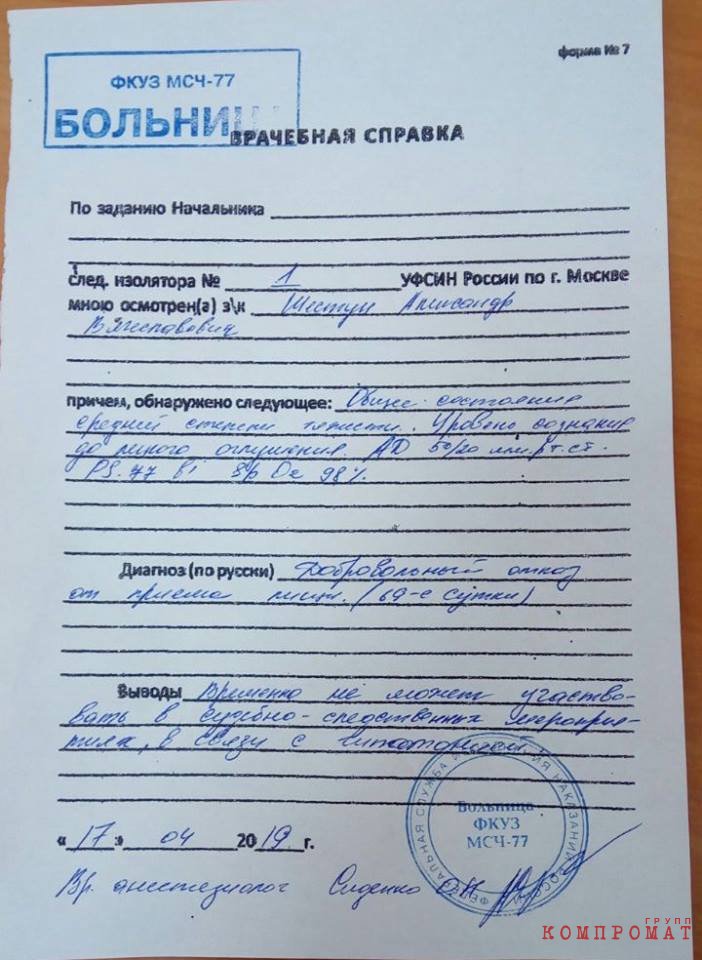 форма № 7
ФКУЗ МСЧ-77
БОЛЬНИЦ
ВРАЧЕБНАЯ СПРАВКА
По заданию Начальника
след. изолятора № 1 УФСИН России по г. Москве
мною осмотрен(а) з\к Шестун Александр
Вячеславович
причем, обнаружено следующее: Общее состояние
средней степени тяжести. Уровень сознания
до легкого оглушения. АД 50/20 мм.рт.ст.
PS. 77 в1 Sp O2 98%.
Диагноз (по русски) Добровольный отказ
от приема пищи. (69-е сутки)
Выводы Временно не может участво-
вать в судебно-следственных мероприя-
тиях, в связи с гипотонией.
« 17 » 04 2019 г.
Больница
ФКУЗ
МСЧ-77
ФЕДЕРАЛЬНАЯ СЛУЖБА ИСПОЛНЕНИЯ НАКАЗАНИЙ РОССИИ
Вр. анестезиолог Сиденко
ГРУПП
КОМПРОМАТ